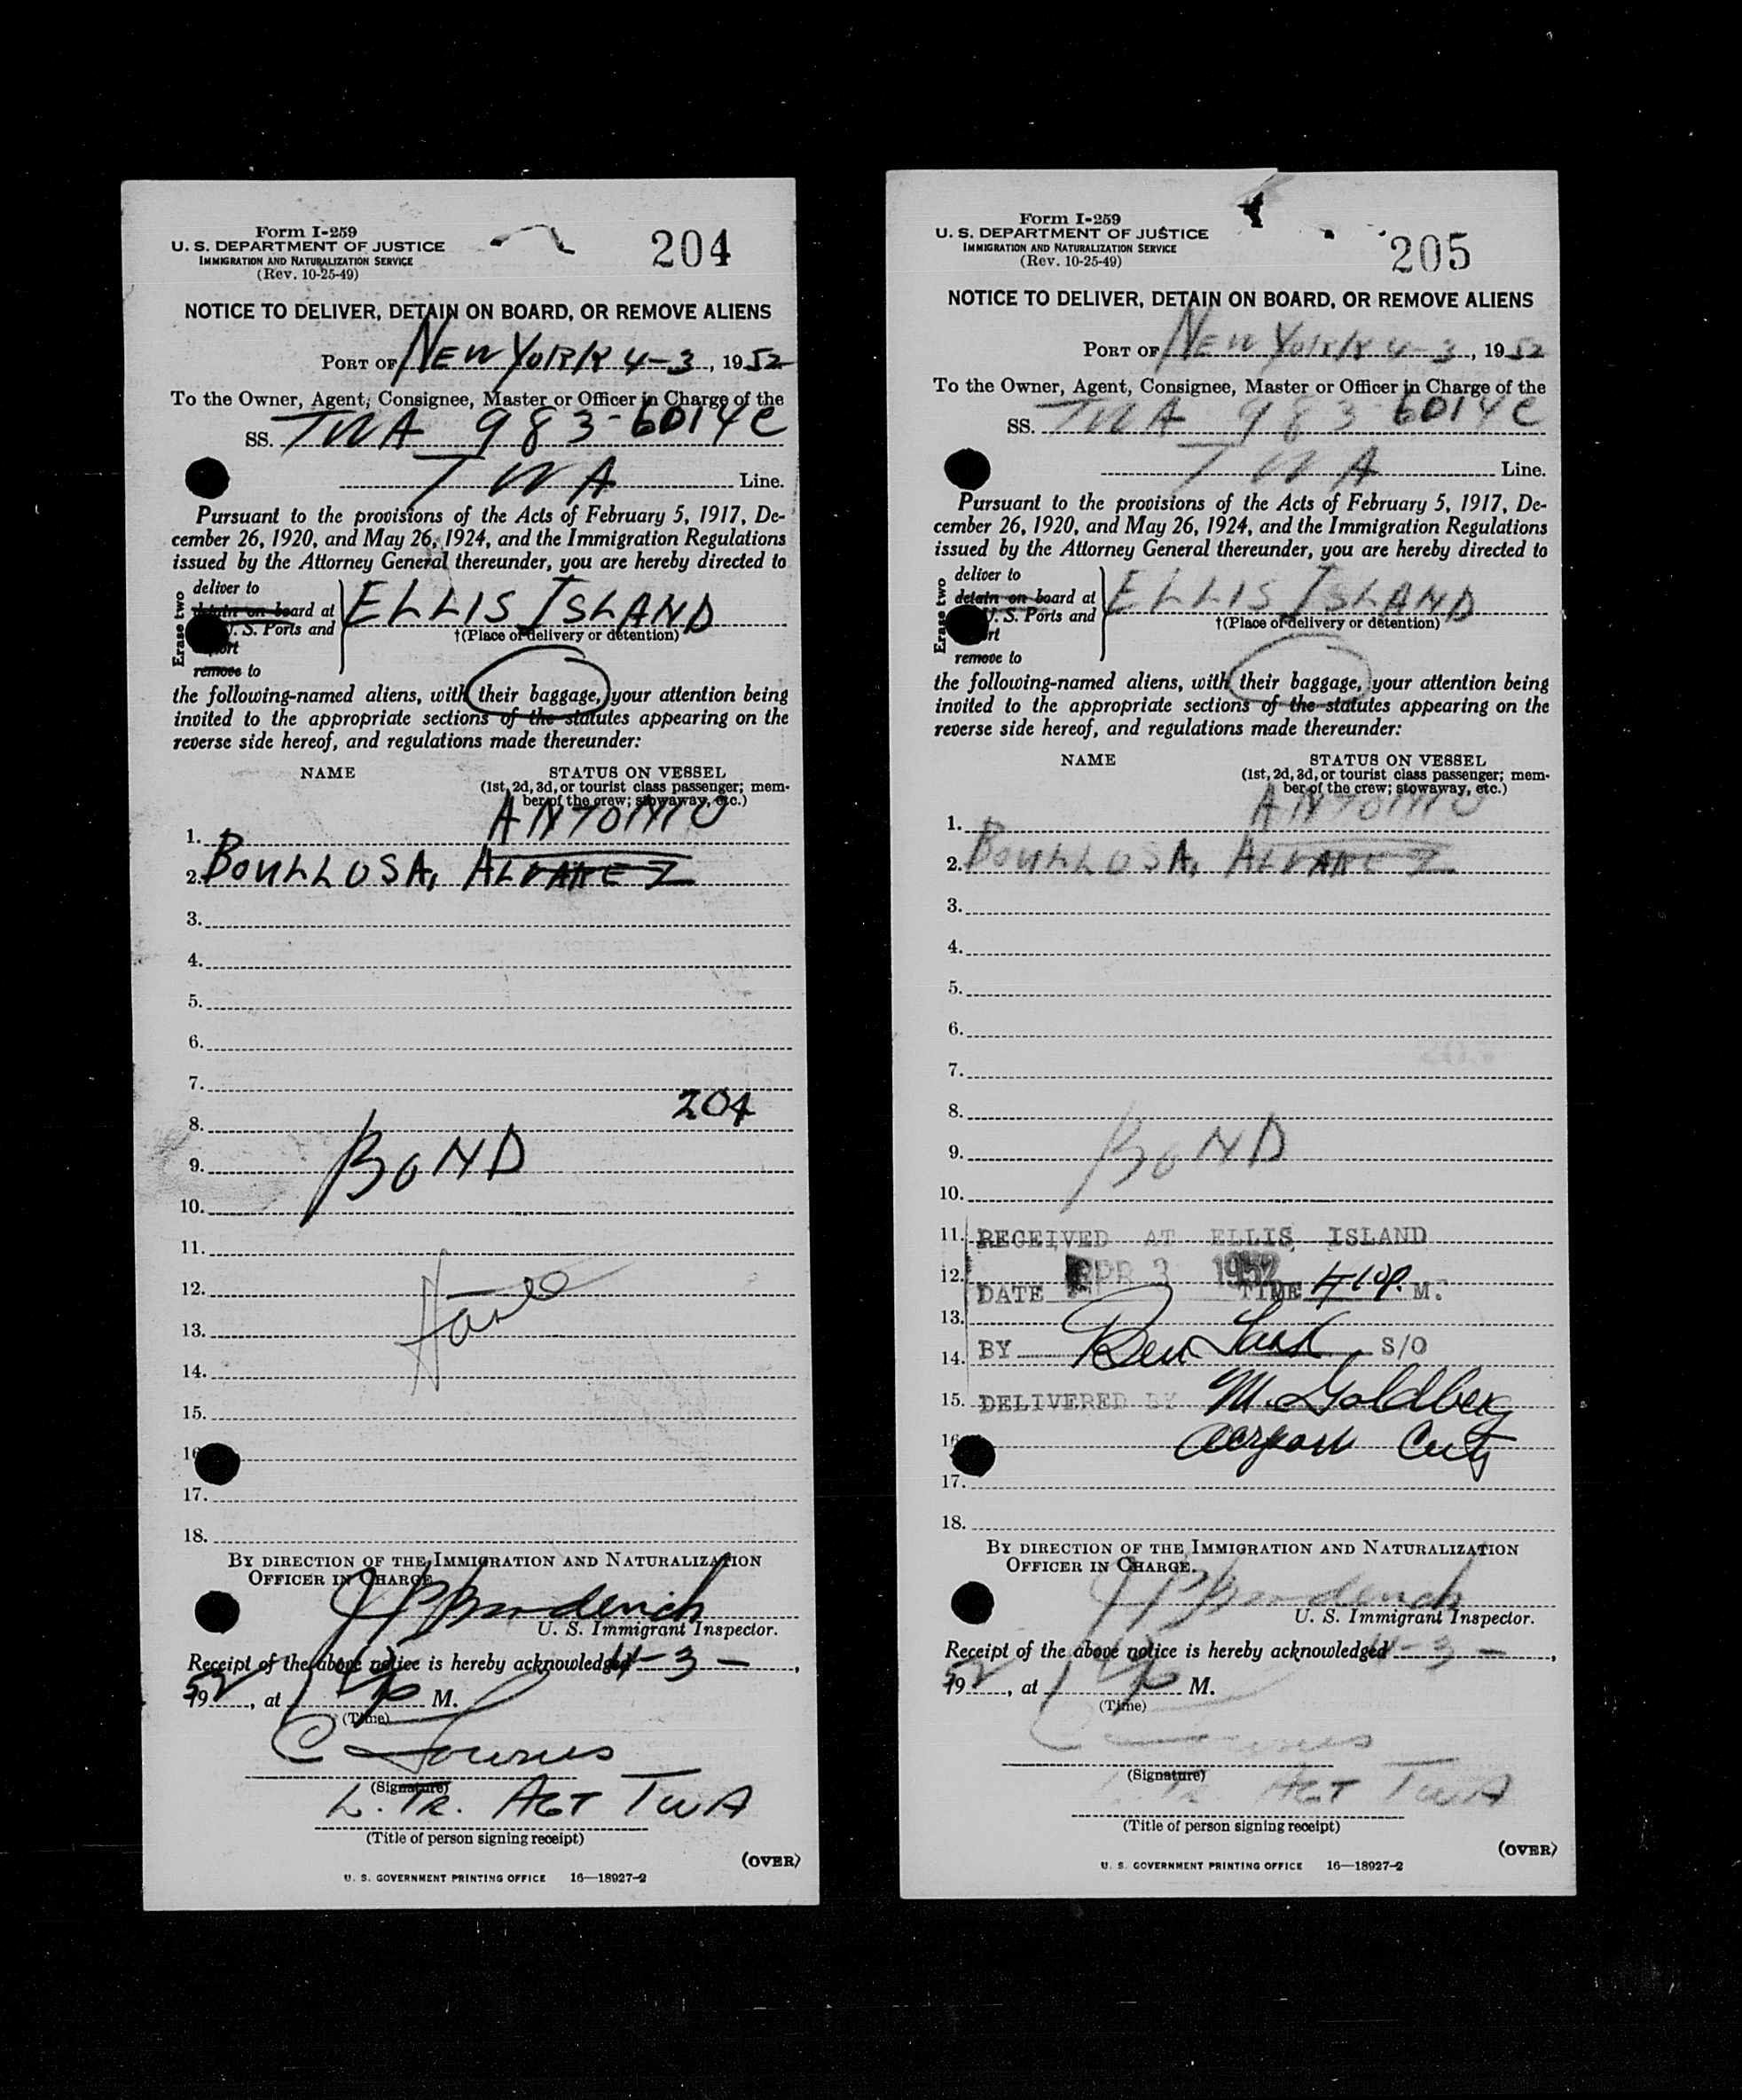 Form I-259
U. S. DEPARTMENT OF JUSTICE
IMMIGRATION AND NATURALIZATION SERVICE
(Rev. 10-25-49)
204
NOTICE TO DELIVER, DETAIN ON BOARD, OR REMOVE ALIENS
PORT OF NEW YORK 4-3, 1952
To the Owner, Agent, Consignee, Master or Officer in Charge of the
SS. TWA 983-6014C
TWA Line.
Pursuant to the provisions of the Acts of February 5, 1917, De-
cember 26, 1920, and May 26, 1924, and the Immigration Regulations
issued by the Attorney General thereunder, you are hereby directed to
Erase two
deliver to
detain on board at
U. S. Ports and
remove to
ELLIS ISLAND
†(Place of delivery or detention)
the following-named aliens, with their baggage, your attention being
invited to the appropriate sections of the statutes appearing on the
reverse side hereof, and regulations made thereunder:
NAME
STATUS ON VESSEL
(1st, 2d, 3d, or tourist class passenger; mem-
ber of the crew; stowaway, etc.)
1. ANTONIO
2. BOULLOSA, ALVAREZ
3.
4.
5.
6.
7.
204
8.
9. BOND
10.
11.
12.
13.
14.
15.
16
17.
18.
BY DIRECTION OF THE IMMIGRATION AND NATURALIZATION
OFFICER IN CHARGE
U. S. Immigrant Inspector.
Receipt of the above notice is hereby acknowledged 4-3-,
1952, at M.
(Time)
(Signature)
L. TR. AGT TWA
(Title of person signing receipt)
(OVER)
U. S. GOVERNMENT PRINTING OFFICE 16—18927-2
Form I-259
U. S. DEPARTMENT OF JUSTICE
IMMIGRATION AND NATURALIZATION SERVICE
(Rev. 10-25-49)
205
NOTICE TO DELIVER, DETAIN ON BOARD, OR REMOVE ALIENS
PORT OF NEW YORK 4-3, 1952
To the Owner, Agent, Consignee, Master or Officer in Charge of the
SS. TWA 983 6014C
TWA Line.
Pursuant to the provisions of the Acts of February 5, 1917, De-
cember 26, 1920, and May 26, 1924, and the Immigration Regulations
issued by the Attorney General thereunder, you are hereby directed to
Erase two
deliver to
detain on board at
U. S. Ports and
remove to
ELLIS ISLAND
†(Place of delivery or detention)
the following-named aliens, with their baggage, your attention being
invited to the appropriate sections of the statutes appearing on the
reverse side hereof, and regulations made thereunder:
NAME
STATUS ON VESSEL
(1st, 2d, 3d, or tourist class passenger; mem-
ber of the crew; stowaway, etc.)
1. ANTONIO
2. BOULLOSA, ALVAREZ
3.
4.
5.
6.
7.
8.
9. BOND
10.
11. RECEIVED AT ELLIS ISLAND
12. DATE APR 3 1952 TIME 410P. M.
13.
14. BY Ben S/O
15. DELIVERED BY M. Goldberg
16
17.
18.
BY DIRECTION OF THE IMMIGRATION AND NATURALIZATION
OFFICER IN CHARGE.
U. S. Immigrant Inspector.
Receipt of the above notice is hereby acknowledged 4-3-,
1952, at M.
(Time)
(Signature)
L. TR. AGT TWA
(Title of person signing receipt)
(OVER)
U. S. GOVERNMENT PRINTING OFFICE 16—18927-2